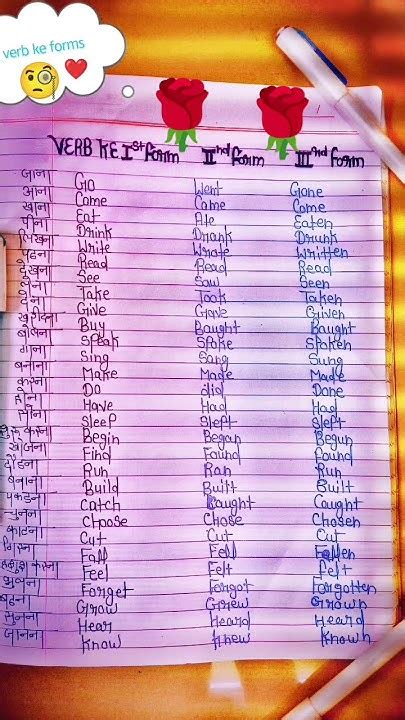 verb ke forms
VERB KE Ist form IInd form IIIrd form
जाना Go Went Gone
आना Come Came Come
खाना Eat Ate Eaten
पीना Drink Drank Drunk
लिखना Write Wrote Written
पढना Read Read Read
देखना See Saw Seen
लेना Take Took Taken
देना Give Gave Given
खरीदना Buy Baught Baught
बोलना Speak Spoke Spoken
गाना Sing Sang Sung
बनाना Make Made Made
करना Do did Done
होना Have Had Had
सोना Sleep Slept Slept
शुरू करना Begin Began Begun
खोजना Find Found Found
दौडना Run Ran Run
बनाना Build Built Built
पकडना Catch Caught Caught
चुनना Choose Chose Chosen
काटना Cut Cut Cut
गिरना Fall Fell Fallen
करना Feel Felt felt
भूलना Forget Forgot Forgotten
बढना Grow Grew Grown
सुनना Hear Heard Heard
जानना Know Knew Known